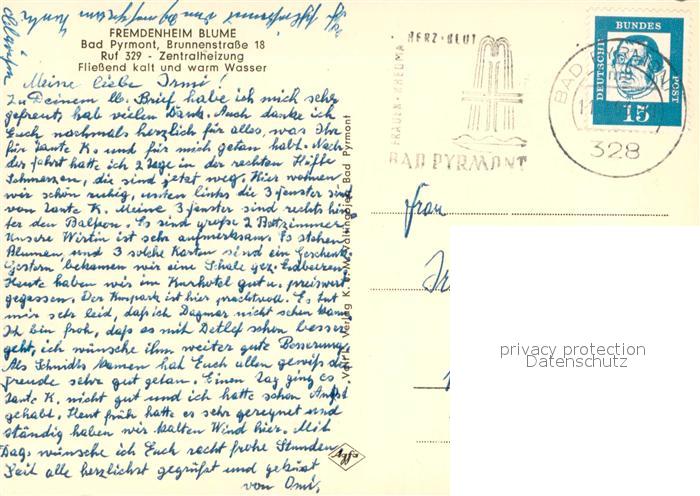 FREMDENHEIM BLUME
Bad Pyrmont, Brunnenstraße 18
Ruf 329 - Zentralheizung
Fließend kalt und warm Wasser
Meine liebe Irmi!
Zu Deinem lb. Brief, habe ich mich sehr
gefreut, hab vielen Dank. Auch danke ich
Euch nochmals herzlich für alles, was Ihr
für Tante K. und für mich getan habt. Nach
der Fahrt hatte ich 2 Tage in der rechten Hüfte
Schmerzen, die sind jetzt weg. Hier wohnen
wir schön ruhig, unten links die 3 Fenster sind
von Tante K. Meine 3 Fenster sind rechts hin-
ter den Balkon. Es sind große 2 Bettzimmer
Unsere Wirtin ist sehr aufmerksam. Es stehen
Blumen, und 3 solche Karten sind ein Geschenk
Gestern bekamen wir eine Schale gez. Erdbeeren
Heute haben wir im Kurhotel gut u. preiswert
gegessen. Der Kurpark ist hier prachtvoll. Es tut
mir sehr leid, daß ich Dagmar nicht sehen kann
Ich bin froh, daß es mit Detlef schon besser
geht, ich wünsche ihm weiter gute Besserung.
Als Schmidts kamen hat Euch allen gewiß die
Freude sehr gut getan. Einen Tag ging es
Tante K. nicht gut und ich hatte schon Angst
gehabt. Heut früh hatte es sehr geregnet und
ständig haben wir kalten Wind hier. Mit
Dag. wünsche ich Euch recht frohe Stunden
Seit alle herzlichst gegrüßt und geküßt
von Omi.
Bad Pyrmont
Agfa
HERZ · BLUT
FRAUEN · RHEUMA
BAD PYRMONT
DEUTSCHE BUNDES POST
15
BAD PYRMONT
328
Frau
privacy protection
Datenschutz